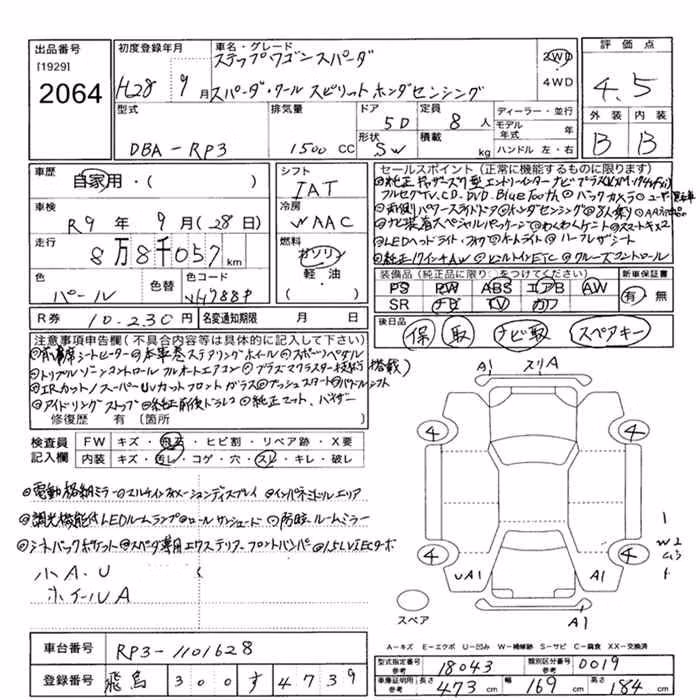 出品番号
[1929]
2064
初度登録年月
H28 9月
車名・グレード
ステップワゴンスパーダ
スパーダ・クール スピリットホンダセンシング
2WD
4WD
評価点
4.5
外装 内装
B B
型式
DBA-RP3
排気量
1500 CC
ドア 5D
形状 SW
定員 8人
積載 kg
ディーラー・並行
モデル年式 年
ハンドル 左・右
車歴
自家用・( )
車検
R9年 9月(28日)
走行
8万8千057 km
色
パール
色替
色コード
NH788P
シフト
IAT
冷房
WAAC
燃料
ガソリン
軽・油
( )
R券 10.230円
名変通知期限 月 日
セールスポイント(正常に機能するものに限ります)
フルセグTV.CD.DVD.Bluetooth ◎バックカメラ
◎両側パワースライドドア ◎ホンダセンシング ◎8人乗り
◎ナビ装着スペシャルパッケージ ◎わくわくゲート ◎スマートキー2
◎LEDヘッドライト・フォグ ◎オートライト ◎ハーフレザーシート
◎純正17インチAW ◎ビルトインETC ◎クルーズコントロール
装備品(純正品に限り○をつけてください)
PS PW ABS エアB AW
SR ナビ TV カワ
新車保証書
有・無
後日品
保 取 ナビ取 スペアキー
注意事項申告欄(不具合内容等は具体的に記入して下さい)
◎前席シートヒーター ◎本革巻ステアリングホイール ◎スポーツペダル
◎トリプルゾーンコントロールフルオートエアコン ◎プラズマクラスター技術搭載)
◎IRカット/スーパーUVカットフロントガラス ◎プッシュスタート ◎パドルシフト
◎アイドリングストップ ◎純正前後ドラレコ ◎純正マット、バイザー
修復歴 有〔箇所
検査員記入欄
FW キズ・飛石・ヒビ割・リペア跡・X要
内装 キズ・汚レ・コゲ・穴・スレ・キレ・破レ
◎電動格納ミラー ◎マルチインフォメーションディスプレイ ◎インパネミドルエリア
◎調光機能付LEDルームランプ ◎ロールサンシェード ◎防眩ルームミラー
◎シートバックポケット ◎スパーダ専用エクステリア・フロントバンパー ◎1.5L VTECターボ
小A.U
ホイールA
A1 スリA
4 4
4 4
UA1 A1
A1
スペア
A-キズ E-エクボ U-凹み W-補修跡 S-サビ C-腐食 XX-交換済
車台番号 RP3-1101628
登録番号 飛鳥 300 す 4739
型式指定番号 参考 18043
類別区分番号 参考 0019
車庫証明用 参考 長さ 473 cm 幅 169 cm 高さ 184 cm